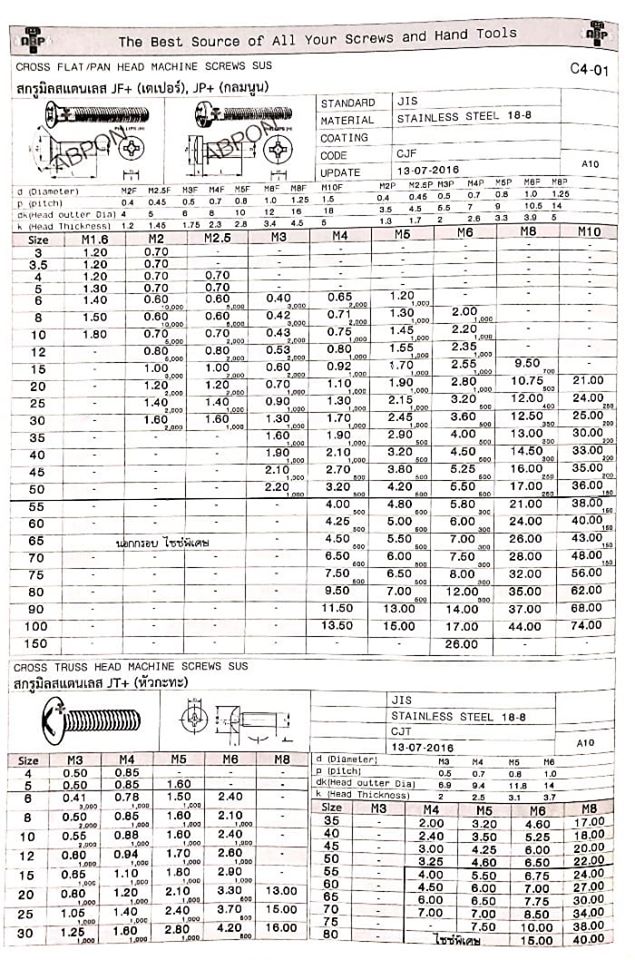 ABP The Best Source of All Your Screws and Hand Tools ABP
CROSS FLAT/PAN HEAD MACHINE SCREWS SUS C4-01
สกรูมิลสแตนเลส JF+ (เตเปอร์), JP+ (กลมนูน)
STANDARD JIS
MATERIAL STAINLESS STEEL 18-8
COATING
CODE CJF
UPDATE 13-07-2016 A10
ABPON ABPON
d (Diameter) M2F M2.5F M3F M4F M5F M6F M8F M10F M2P M2.5P M3P M4P M5P M6P M8P
p (pitch) 0.4 0.45 0.5 0.7 0.8 1.0 1.25 1.5 0.4 0.45 0.5 0.7 0.8 1.0 1.25
dk(Head outter Dia) 4 5 6 8 10 12 16 18 3.5 4.5 5.5 7 9 10.5 14
k (Head Thickness) 1.2 1.45 1.75 2.3 2.8 3.4 4.5 5 1.3 1.7 2 2.6 3.3 3.9 5
Size M1.6 M2 M2.5 M3 M4 M5 M6 M8 M10
3 1.20 0.70 - - - - - - -
3.5 1.20 0.70 - - - - - - -
4 1.20 0.70 0.70 - - - - - -
5 1.30 0.70 0.70 - - - - - -
6 1.40 0.60 10,000 0.60 5,000 0.40 3,000 0.65 2,000 1.20 1,000 - - -
8 1.50 0.60 10,000 0.60 5,000 0.42 3,000 0.71 2,000 1.30 1,000 2.00 1,000 - -
10 1.80 0.70 5,000 0.70 2,000 0.43 3,000 0.75 1,000 1.45 1,000 2.20 1,000 - -
12 - 0.80 5,000 0.80 2,000 0.53 2,000 0.80 1,000 1.55 1,000 2.35 1,000 - -
15 - 1.00 3,000 1.00 2,000 0.60 2,000 0.92 1,000 1.70 1,000 2.55 1,000 9.50 700 -
20 - 1.20 2,000 1.20 2,000 0.70 1,000 1.10 1,000 1.90 1,000 2.80 500 10.75 500 21.00
25 - 1.40 2,000 1.40 1,000 0.90 1,000 1.30 1,000 2.15 1,000 3.20 500 12.00 400 24.00 250
30 - 1.60 2,000 1.60 1,000 1.30 1,000 1.70 1,000 2.45 1,000 3.60 500 12.50 350 25.00 200
35 - - - 1.60 1,000 1.90 1,000 2.90 500 4.00 500 13.00 300 30.00 200
40 - - - 1.90 1,000 2.10 1,000 3.20 500 4.50 500 14.50 300 33.00 200
45 - - - 2.10 1,000 2.70 500 3.80 500 5.25 500 16.00 250 35.00 200
50 - - - 2.20 1,000 3.20 500 4.20 500 5.50 500 17.00 250 36.00 150
55 - - - - 4.00 500 4.80 500 5.80 300 21.00 38.00 150
60 - - - - 4.25 500 5.00 500 6.00 300 24.00 40.00 150
65 นอกกรอบ ไซซ์พิเศษ 4.50 500 5.50 500 7.00 300 26.00 43.00 150
70 - - - - 6.50 500 6.00 500 7.50 300 28.00 48.00 150
75 - - - - 7.50 500 6.50 500 8.00 300 32.00 56.00
80 - - - - 9.50 7.00 500 12.00 300 35.00 62.00
90 - - - - 11.50 13.00 14.00 37.00 68.00
100 - - - - 13.50 15.00 17.00 44.00 74.00
150 - - - - - - 26.00 - -
CROSS TRUSS HEAD MACHINE SCREWS SUS
สกรูมิลสแตนเลส JT+ (หัวกะทะ)
JIS
STAINLESS STEEL 18-8
CJT
13-07-2016 A10
Size M3 M4 M5 M6 M8
4 0.50 0.85 - - -
5 0.50 0.85 1.60 - -
6 0.41 3,000 0.78 1,000 1.50 1,000 2.40 -
8 0.50 2,000 0.85 1,000 1.60 1,000 2.10 1,000 -
10 0.55 2,000 0.88 1,000 1.60 1,000 2.40 1,000 -
12 0.60 1,000 0.94 1,000 1.70 1,000 2.60 1,000 -
15 0.65 1,000 1.10 1,000 1.80 1,000 2.90 1,000 -
20 0.80 1,000 1.20 1,000 2.10 1,000 3.30 500 13.00
25 1.05 1,000 1.40 1,000 2.40 1,000 3.70 500 15.00
30 1.25 1,000 1.60 1,000 2.80 1,000 4.20 500 16.00
d (Diameter) M3 M4 M5 M6
p (pitch) 0.5 0.7 0.8 1.0
dk(Head outter Dia) 6.9 9.4 11.8 14
k (Head Thickness) 2 2.5 3.1 3.7
Size M3 M4 M5 M6 M8
35 - 2.00 3.20 4.60 17.00
40 - 2.40 3.50 5.25 18.00
45 - 3.00 4.25 6.00 20.00
50 - 3.25 4.60 6.50 22.00
55 - 4.00 5.50 6.75 24.00
60 - 4.50 6.00 7.00 27.00
65 - 6.00 6.50 7.75 30.00
70 - 7.00 7.00 8.50 34.00
75 - - 7.50 10.00 38.00
80 ไซซ์พิเศษ 15.00 40.00